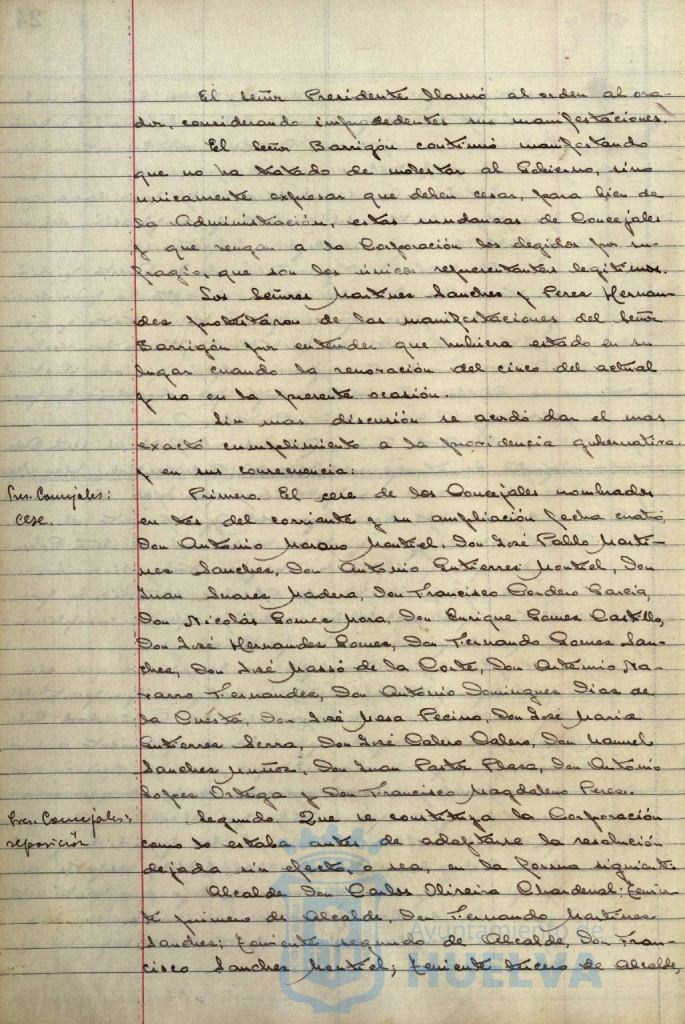 El Señor Presidente llamó al orden al ora-
dor, considerando improcedentes sus manifestaciones.
El Señor Barrigón continuó manifestando
que no ha tratado de molestar al Gobierno, sino
unicamente expresar que deben cesar, para bien de
la Administración, estas mudanzas de Concejales
y que vengan a la Corporación los elegidos por su-
fragio, que son los únicos representantes legítimos.
Los Señores Martinez Sanchez y Perez Hernan-
dez protestaron de las manifestaciones del Señor
Barrigón por entender que hubiera estado en su
lugar cuando la renovación del cinco del actual
y no en la presente ocasión.
Sin mas discusión se acordó dar el mas
exacto cumplimiento a la providencia gubernativa
y en sus consecuencia:
Sres. Concejales:
cese.
Primero. El cese de los Concejales nombrados
en tres del corriente y su ampliación fecha cuatro,
Don Antonio Morano Montiel, Don José Pablo Marti-
nez Sanchez, Don Antonio Gutierrez Montiel, Don
Juan Suarez Madera, Don Francisco Cordero Garcia,
Don Nicolás Gomez Mora, Don Enrique Gomez Castillo,
Don José Hernandez Gomez, Don Fernando Gomez San-
chez, Don José Massó de la Corte, Don Antonio Na-
varro Fernandez, Don Antonio Dominguez Diaz de
la Cuesta, Don José Mesa Pecino, Don José Maria
Gutierrez Serra, Don José Calero Calero, Don Manuel
Sanchez Muñoz, Don Juan Pastor Plaza, Don Antonio
Lopez Ortega y Don Francisco Magdaleno Perez.
Sres. Concejales;
reposición
Segundo. Que se constituya la Corporación
como lo estaba antes de adoptarse la resolución
dejada sin efecto, o sea, en la forma siguiente:
Alcalde Don Carlos Oliveira Chardenal; Tenien-
te primero de Alcalde, Don Fernando Martinez
Sanchez; Teniente segundo de Alcalde, Don Fran-
cisco Sanchez Montiel; Teniente tercero de Alcalde,
Ayuntamiento de
HUELVA